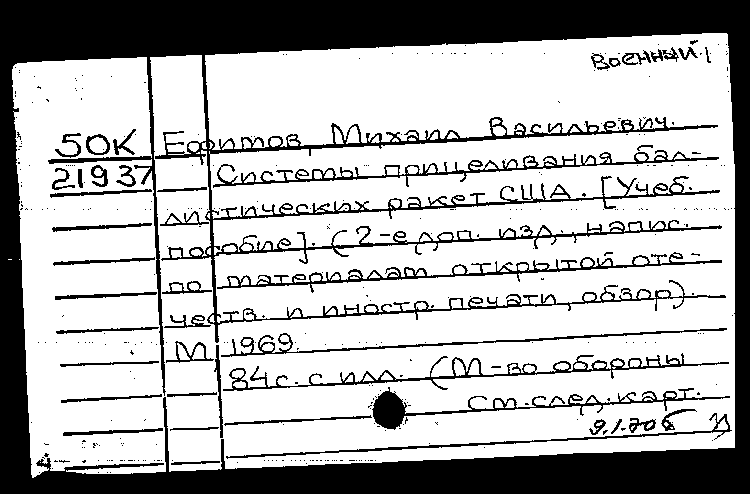 Военный
50К Ефимов, Михаил Васильевич.
21937 Системы прицеливания бал-
листических ракет США. [Учеб.
пособие]. (2-е доп. изд., напис.
по материалам открытой оте-
честв. и иностр. печати, обзор).
М, 1969.
84с. с илл. (М-во обороны
См.след.карт.
9.1.70